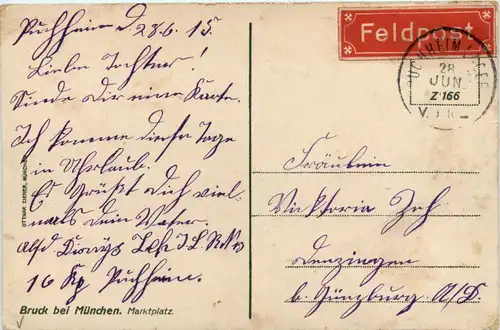 Puchheim d 28.6.15.
Liebe Tochter!
Sende Dir eine Karte.
Ich komme diese Tage
in Uhrlaub.
Es Grüßt Dich viel-
mals Dein Vater.
Dionys Zeh
16 Puchheim.
OTTMAR ZIEHER, MÜNCHEN
Bruck bei München. Marktplatz.
Feldpost
PUCHHEIM
28
JUN
Z 166
Fräulein
Viktoria Zeh
Denzingen
b. Günzburg A/D.